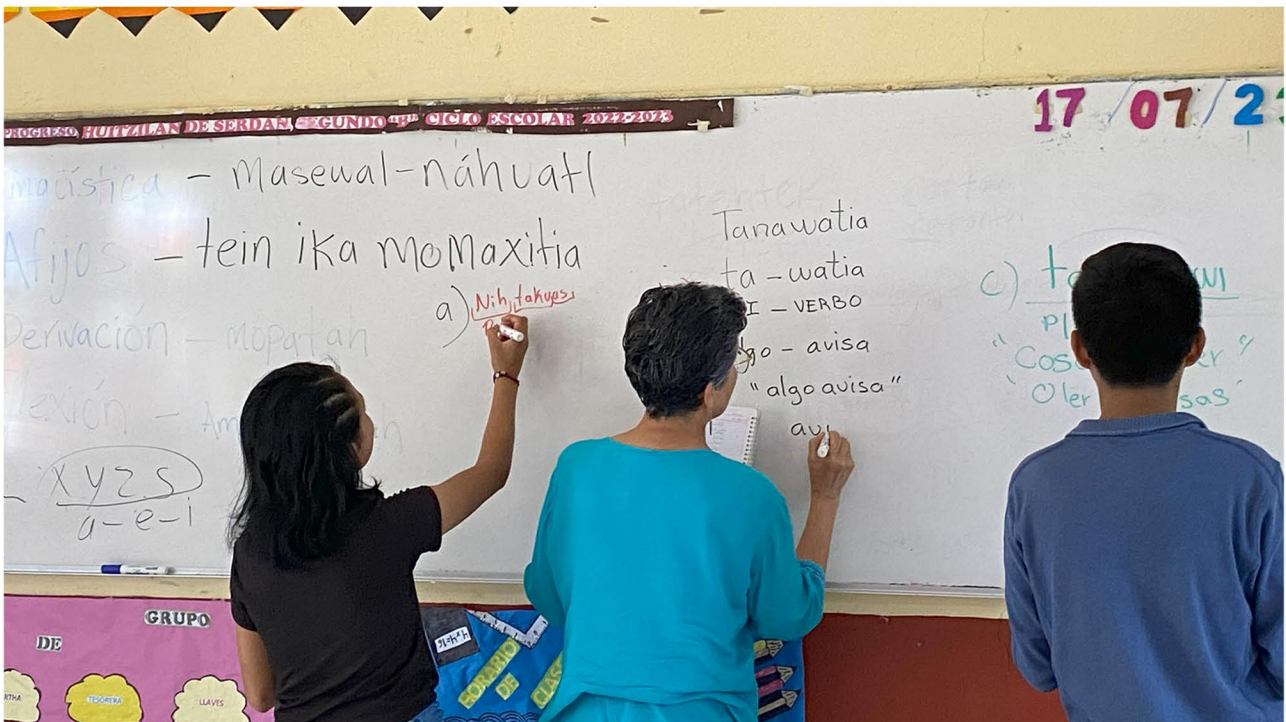 PROGRESO, HUITZILAN DE SERDAN, SEGUNDO "B" CICLO ESCOLAR 2022-2023
17/07/2
- masewal-náhuatl
Afijos - tein ika momaxitia
a) Nih, takuas,
Derivación -
xyzs
a-e-i
Tanawatia
ta - watia
I - VERBO
go - avisa
"algo avisa"
avi
c) t
"Cos er"
"Oler sas"
GRUPO
DE
TESORERA
LLAVES
4x4=16
HORARIO
DE
CLAS